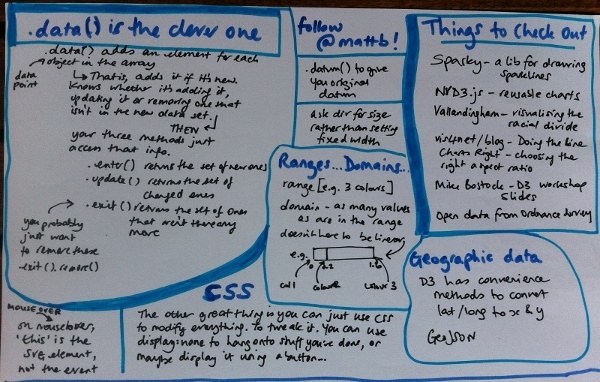 .data() is the clever one
.data() adds an element for each
object in the array
data
point
That is, adds it if it's new.
Knows whether it's adding it,
updating it or removing one that
isn't in the new data set.
THEN
your three methods just
access that info.
.enter() returns the set of new ones
.update() returns the set of
changed ones
.exit() returns the set of ones
that aren't there any
more
you probably
just want
to remove these
.exit().remove()
MOUSEOVER
on mouseover,
'this' is the
SVG element,
not the event
follow
@mattb!
.datum() to give
you original
datum
ask div for size
rather than setting
fixed width
Ranges... Domains...
range [e.g. 3 colours]
domain - as many values
as are in the range
doesn't have to be linear
e.g.
0 0.2 1.0
col 1 colour 2 colour 3
CSS
The other great thing is you can just use CSS
to modify everything. To tweak it. You can use
display:none to hang onto stuff you've done, or
maybe display it using a button...
Things to check out
Sparky - a lib for drawing
sparklines
NVD3.js - reusable charts
Vallandingham - visualising the
racial divide
vis4.net/blog - Doing the Line
Charts Right - choosing the
right aspect ratio
Mike Bostock - D3 workshop
slides
Open data from Ordnance Survey
Geographic data
D3 has convenience
methods to convert
lat/long to x & y
GeoJson